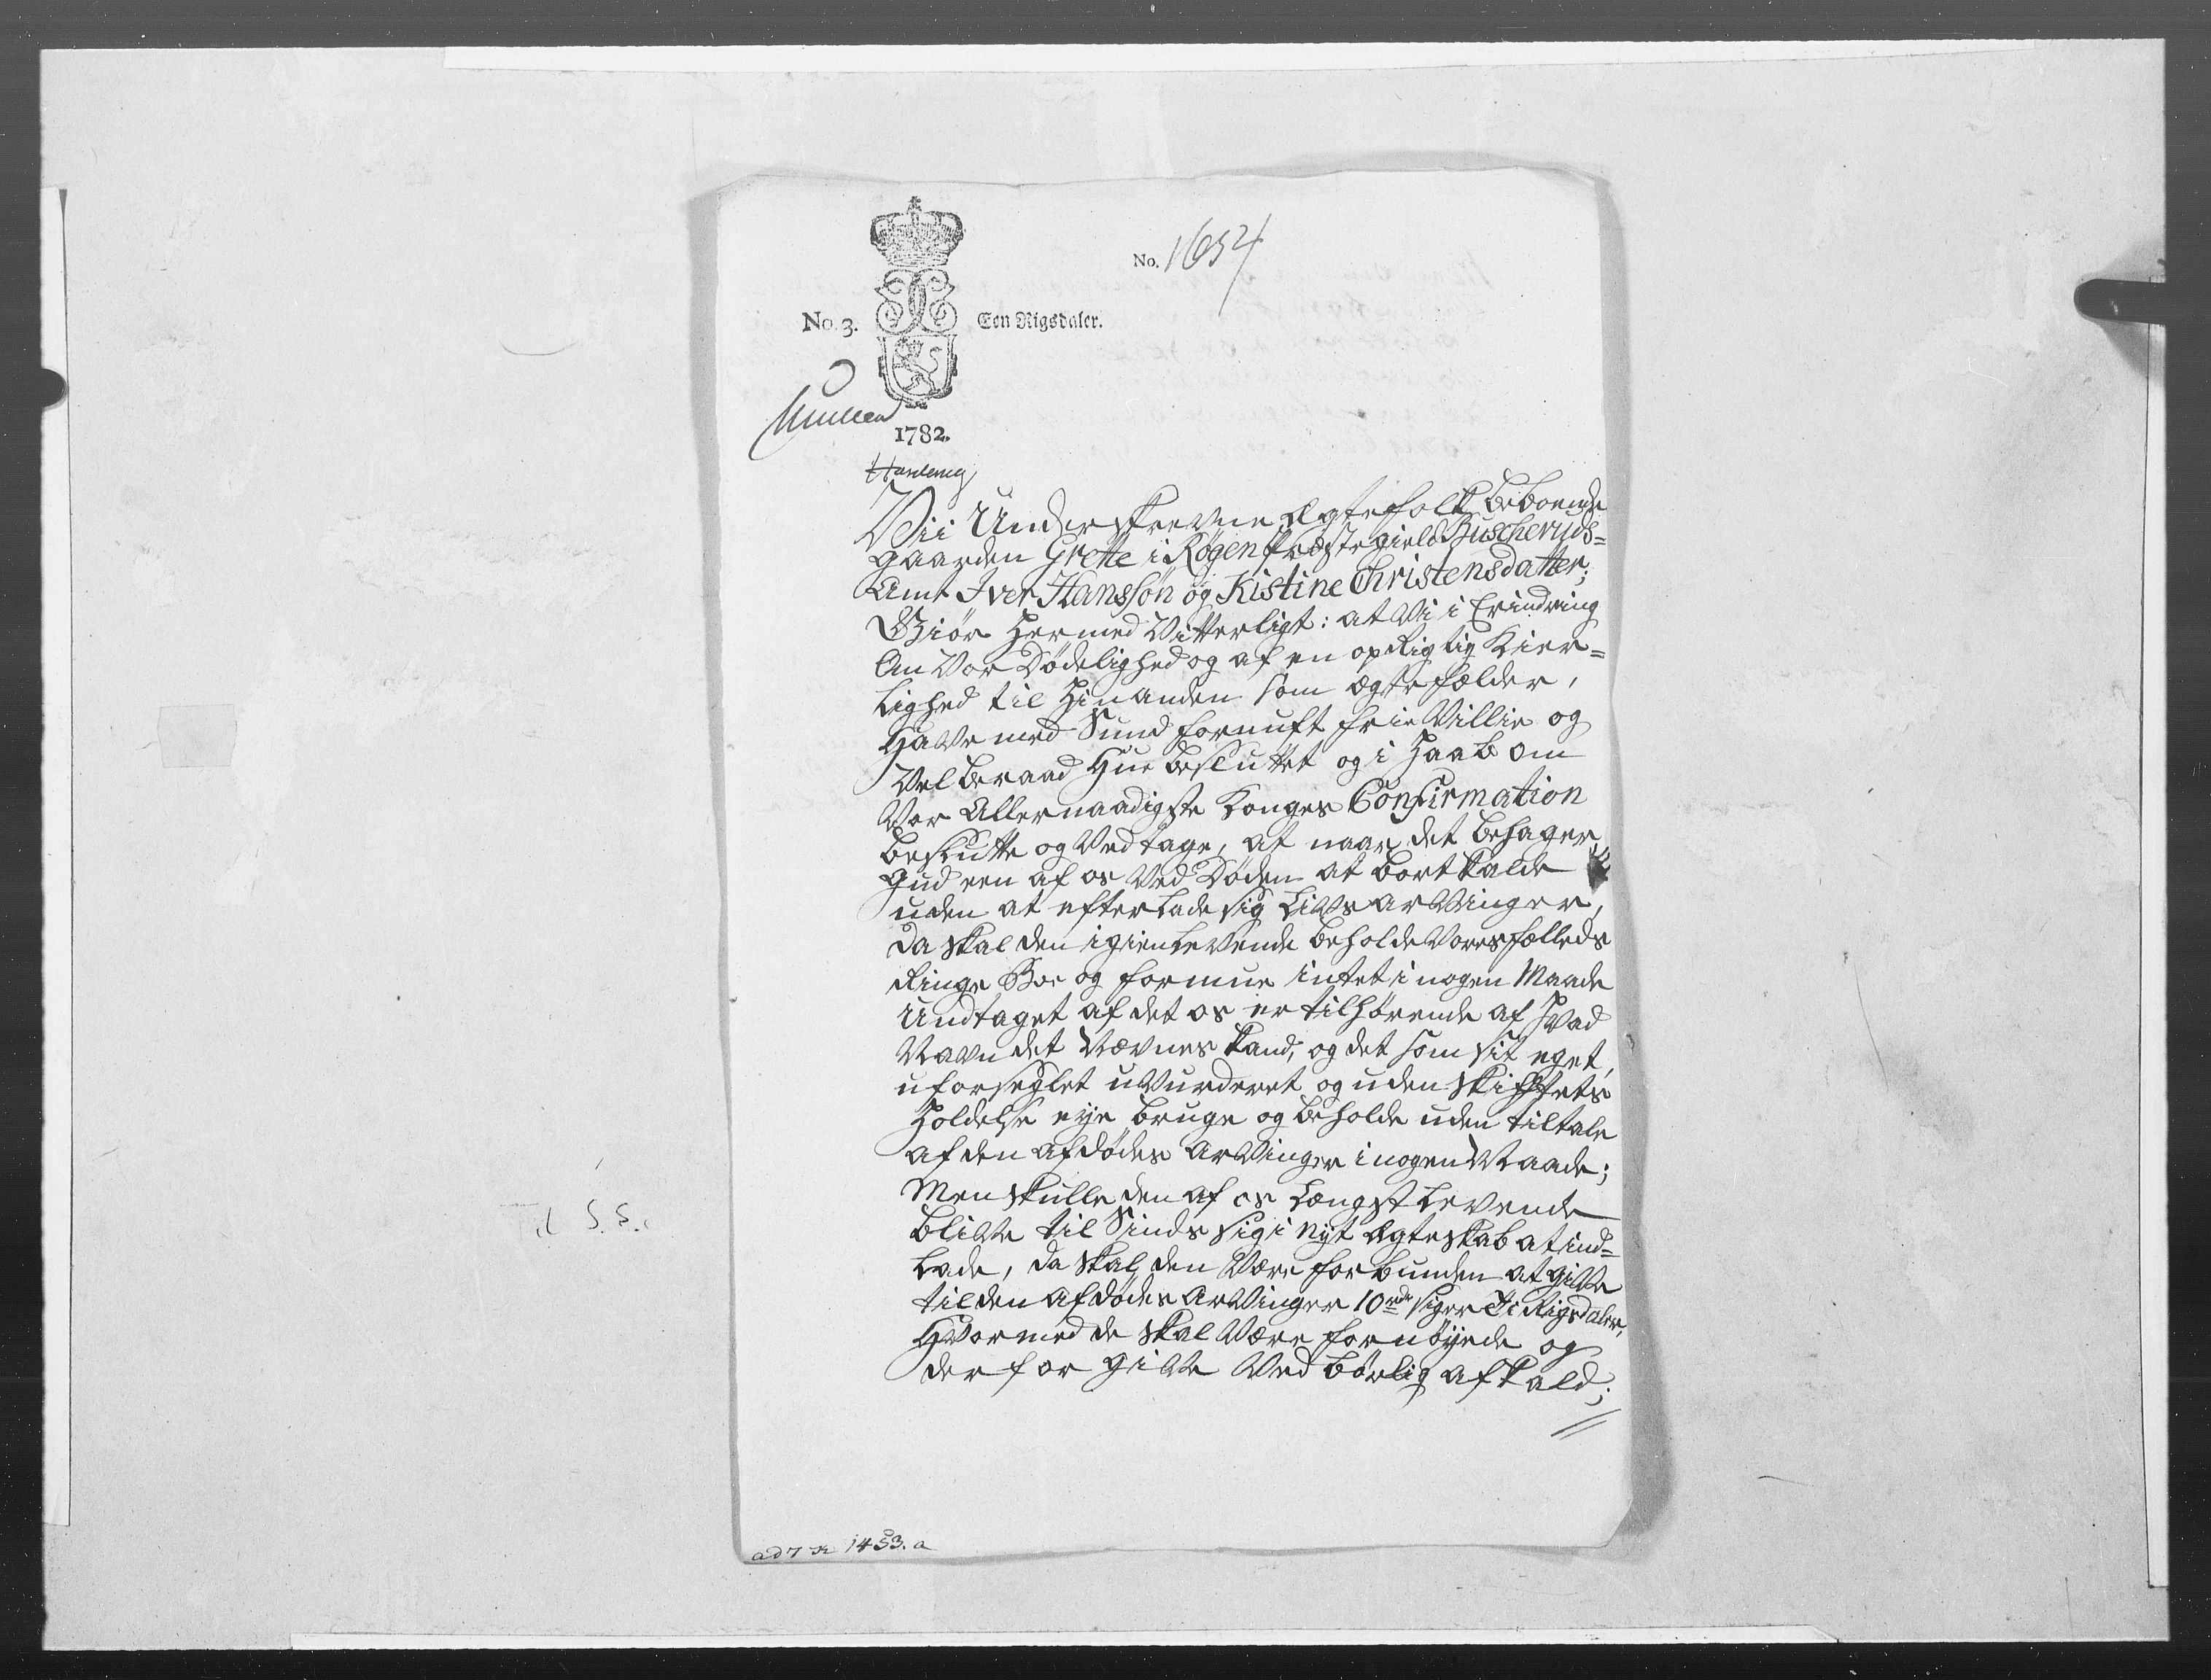 No. 1654
No. 3.
Een Rigsdaler.
1782.
Vii Underskrevne Ægtefolk beboende
gaarden Grette i Røgen Præstegield Buscheruds=
Amt Iver Hanssøn og Kistine Christensdatter;
Giør Hermed Vitterligt: at Vi i Erindring
Om Vor Dødelighed og af en opRigtig Kier=
Lighed til Hinanden som ægtefælder,
Have med Sund fornuft frie Villie og
Vel beraad Hue besluttet og i Haab om
Vor Allernaadigste Konges Confirmation
beslutte og Vedtage, at naar det behager
Gud een af os Ved Døden at bortkalde
uden at efterlade sig Livs arvinger,
da skal den igienlevende beholde Vores fælleds
Ringe Boe og formue intet i nogen Maade
Undtaget af det os er tilhørende af Hvad
Navn det Nævnes kand, og det som sit eget,
uforseglet uVurderet og uden Skiftets
Holdelse eye bruge og beholde uden tiltale
af den afdødes Arvinger i nogen Maade;
Men skulle den af os Længst Levende
blive til Sinds sig i Nyt Ægteskab at ind=
Lade, da skal den Være forbunden at give
til den afdødes Arvinger 10 rdr siger Ti Rigsdaler,
Hvormed de skal Være fornøyede og
derfor give Ved børlig afkald;
Til S. S.
ad 7 1453. a